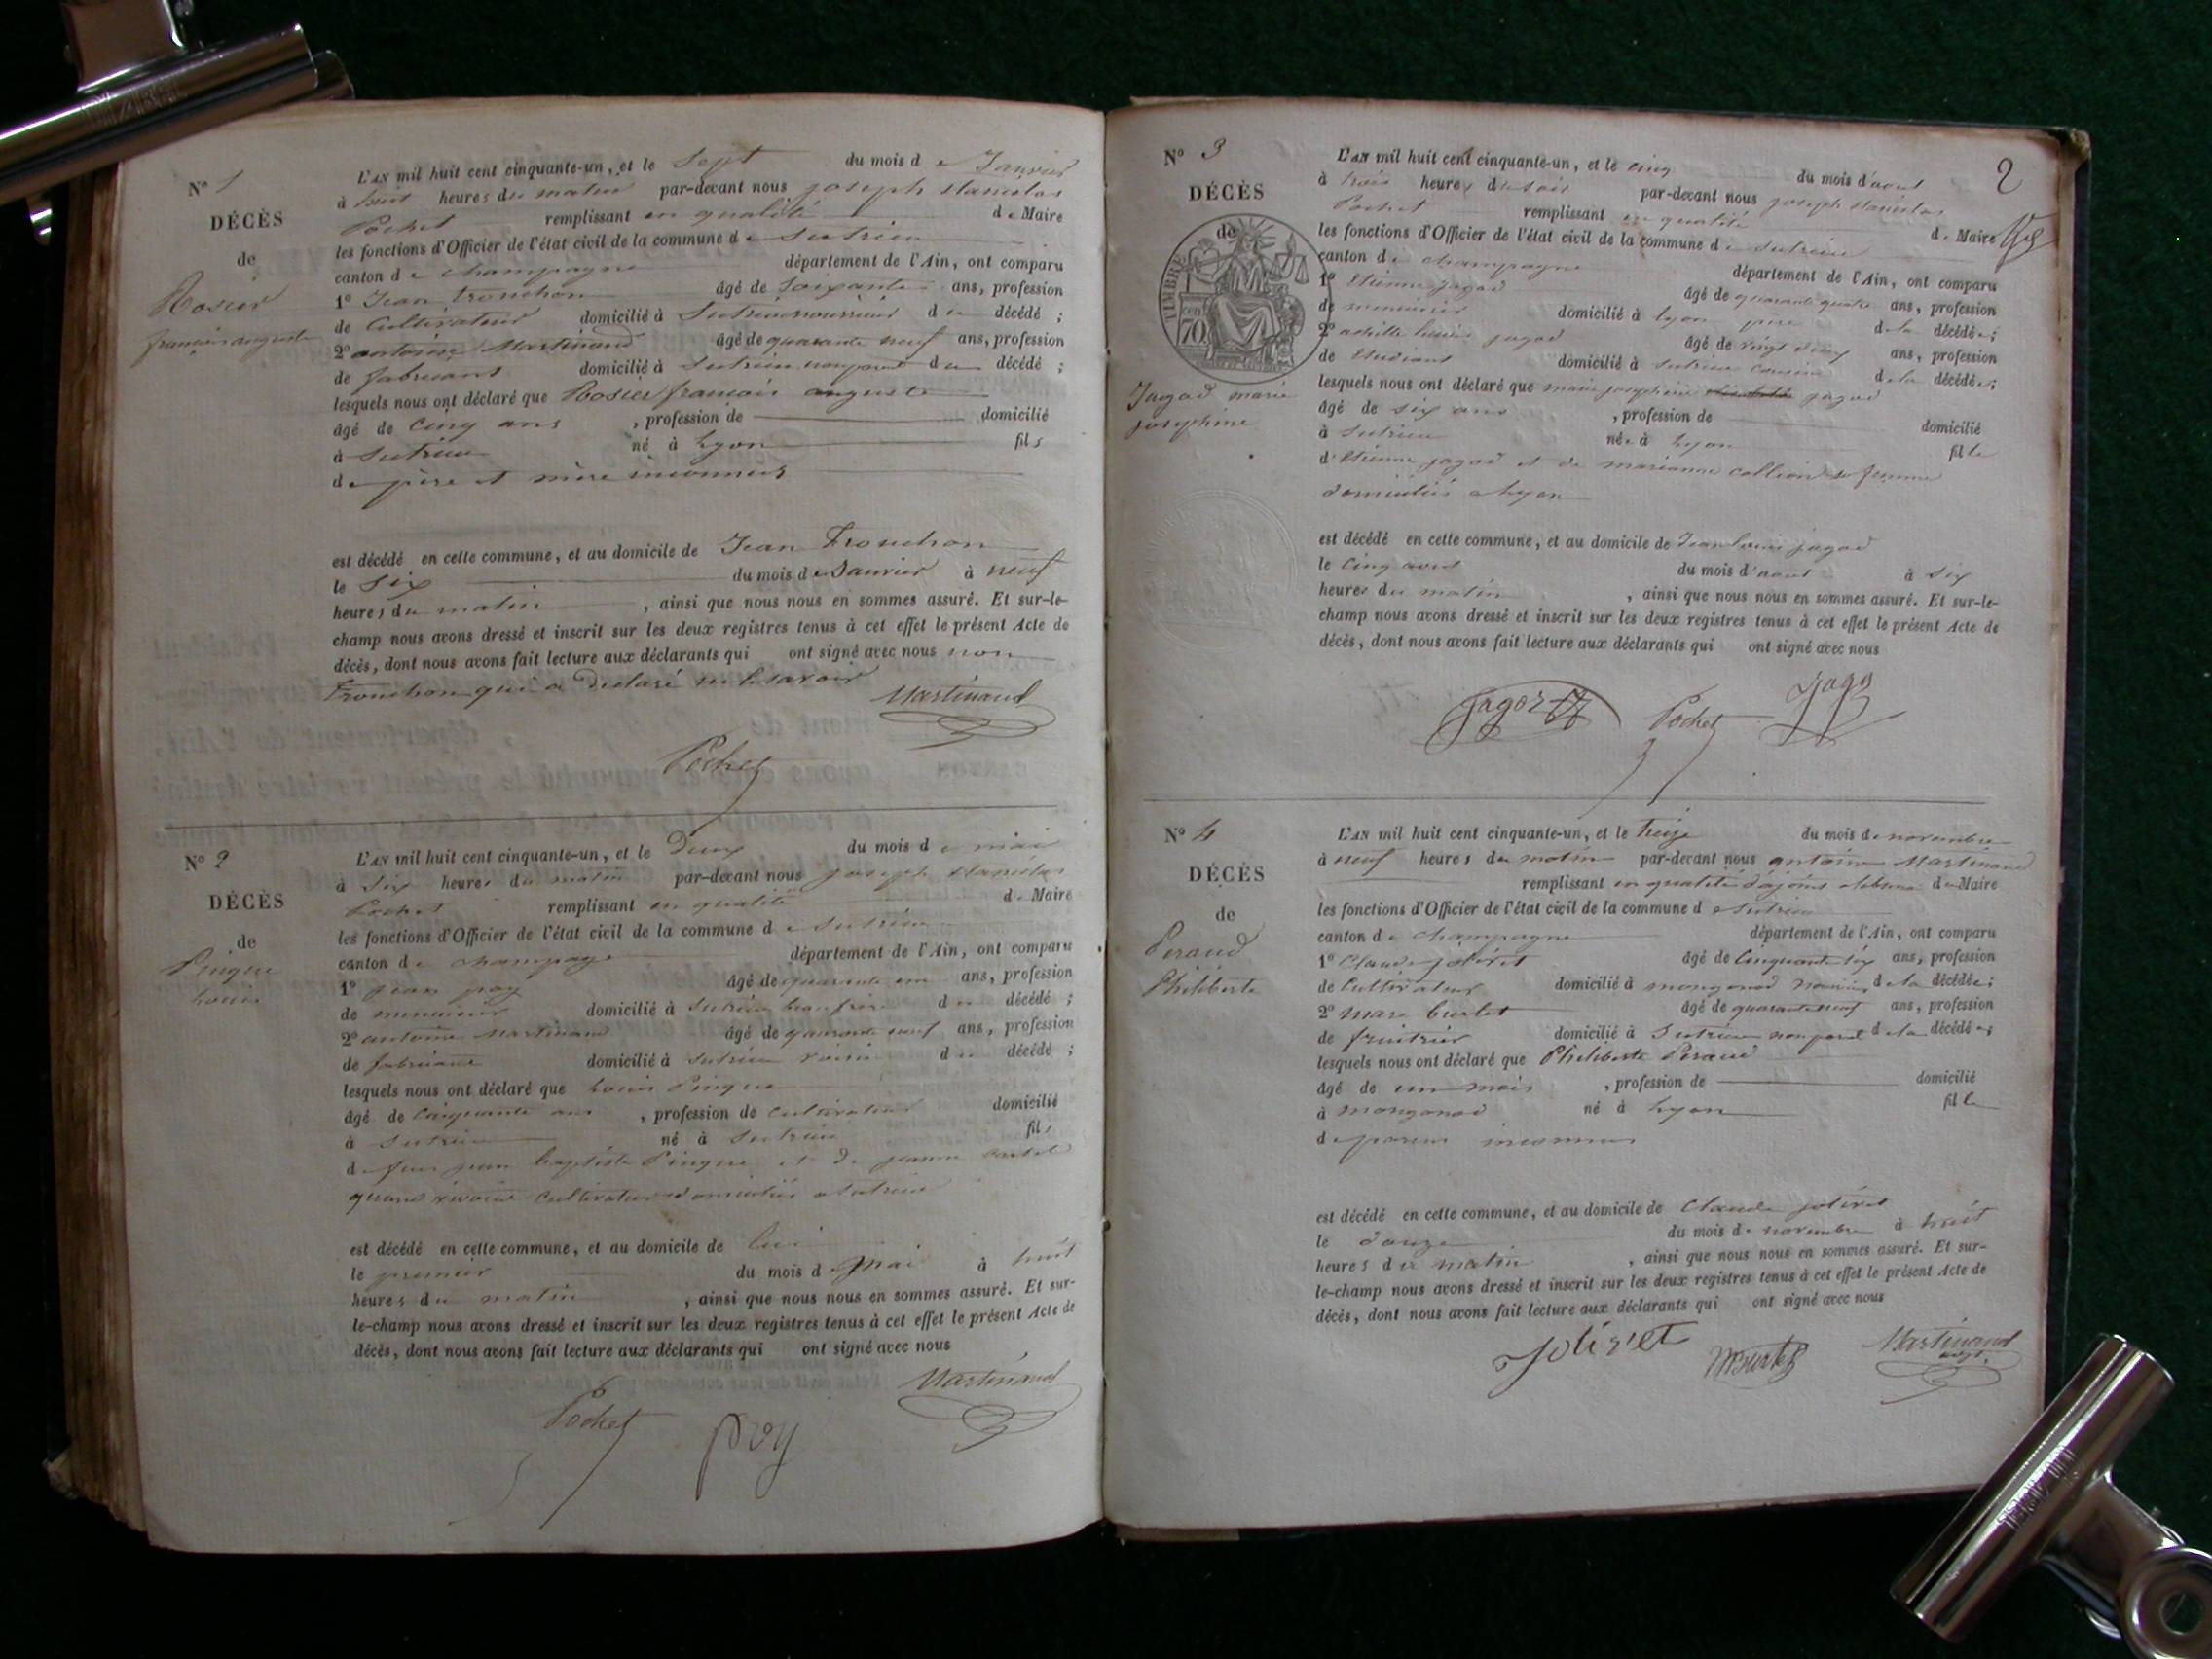 N° 1
DÉCÈS
de
Rosier
françois auguste
L'AN mil huit cent cinquante-un, et le Sept du mois de Janvier
à huit heures du matin par-devant nous joseph stanislas
Pochet remplissant en qualité de Maire
les fonctions d'Officier de l'état civil de la commune de Sutrieu
canton de champagne département de l'Ain, ont comparu
1° Jean tronchon âgé de Soixante ans, profession
de Cultivateur domicilié à Sutrieu nourricier du décédé ;
2° antoine Martinand âgé de quarante neuf ans, profession
de fabricant domicilié à Sutrieu non parent du décédé ;
lesquels nous ont déclaré que Rosier françois auguste
âgé de Cinq ans , profession de domicilié
à Sutrieu né à Lyon fils
de père et mère inconnus
est décédé en cette commune, et au domicile de Jean Tronchon
le Six du mois de Janvier à neuf
heures du matin , ainsi que nous nous en sommes assuré. Et sur-le-
champ nous avons dressé et inscrit sur les deux registres tenus à cet effet le présent Acte de
décès, dont nous avons fait lecture aux déclarants qui ont signé avec nous non
Tronchon qui a déclaré ne le savoir Martinand
Pochet
N° 2
DÉCÈS
de
Pingue
Louis
L'AN mil huit cent cinquante-un, et le Deux du mois de mai
à Six heures du matin par-devant nous joseph stanislas
Pochet remplissant en qualité de Maire
les fonctions d'Officier de l'état civil de la commune de Sutrieu
canton de champagne département de l'Ain, ont comparu
1° jean poy âgé de quarante un ans, profession
de menuisier domicilié à Sutrieu beau frère du décédé ;
2° antoine Martinand âgé de quarante neuf ans, profession
de fabricant domicilié à Sutrieu voisin du décédé ;
lesquels nous ont déclaré que Louis Pingue
âgé de Cinquante ans , profession de Cultivateur domicilié
à Sutrieu né à Sutrieu fils
de feu jean baptiste Pingue et de jeanne
quand vivaient Cultivateurs domiciliés a Sutrieu
est décédé en cette commune, et au domicile de lui
le premier du mois de Mai à huit
heures du matin , ainsi que nous nous en sommes assuré. Et sur-
le-champ nous avons dressé et inscrit sur les deux registres tenus à cet effet le présent Acte de
décès, dont nous avons fait lecture aux déclarants qui ont signé avec nous
Martinand
Pochet poy
2
N° 3
DÉCÈS
de
TIMBRE
70 cen
Jagod marie
josephine
L'AN mil huit cent cinquante-un, et le cinq du mois d'aout
à trois heures du soir par-devant nous joseph stanislas
Pochet remplissant en qualité de Maire
les fonctions d'Officier de l'état civil de la commune de Sutrieu
canton de champagne département de l'Ain, ont comparu
1° Etienne jagod âgé de quarante quatre ans, profession
de menuisier domicilié à Lyon père de la décédée ;
2° achille Louis jagod âgé de vingt deux ans, profession
de Etudiant domicilié à Sutrieu cousin de la décédée ;
lesquels nous ont déclaré que marie josephine jagod
âgé de six ans , profession de domicilié
à Sutrieu née à Lyon fille
d'Etienne jagod et de marianne collion sa femme
domiciliés a Lyon
est décédé en cette commune, et au domicile de Jean Louis jagod
le Cinq aout du mois d'aout à six
heures du matin , ainsi que nous nous en sommes assuré. Et sur-le-
champ nous avons dressé et inscrit sur les deux registres tenus à cet effet le présent Acte de
décès, dont nous avons fait lecture aux déclarants qui ont signé avec nous
Jagod Pochet Jagod
N° 4
DÉCÈS
de
Peraud
Philiberte
L'AN mil huit cent cinquante-un, et le treize du mois de novembre
à neuf heures du matin par-devant nous antoine Martinand
remplissant en qualité d'ajoint de Maire
les fonctions d'Officier de l'état civil de la commune de Sutrieu
canton de champagne département de l'Ain, ont comparu
1° Claude jolivet âgé de Cinquante six ans, profession
de Cultivateur domicilié à mongonod nourricier de la décédée ;
2° Marc burlet âgé de quarante neuf ans, profession
de fruitier domicilié à Sutrieu non parent de la décédée ;
lesquels nous ont déclaré que Philiberte Peraud
âgé de un mois , profession de domicilié
à mongonod né à Lyon fille
de parens inconnus
est décédé en cette commune, et au domicile de Claude jolivet
le douze du mois de novembre à huit
heures du matin , ainsi que nous nous en sommes assuré. Et sur-
le-champ nous avons dressé et inscrit sur les deux registres tenus à cet effet le présent Acte de
décès, dont nous avons fait lecture aux déclarants qui ont signé avec nous
Jolivet MBurlet Martinand